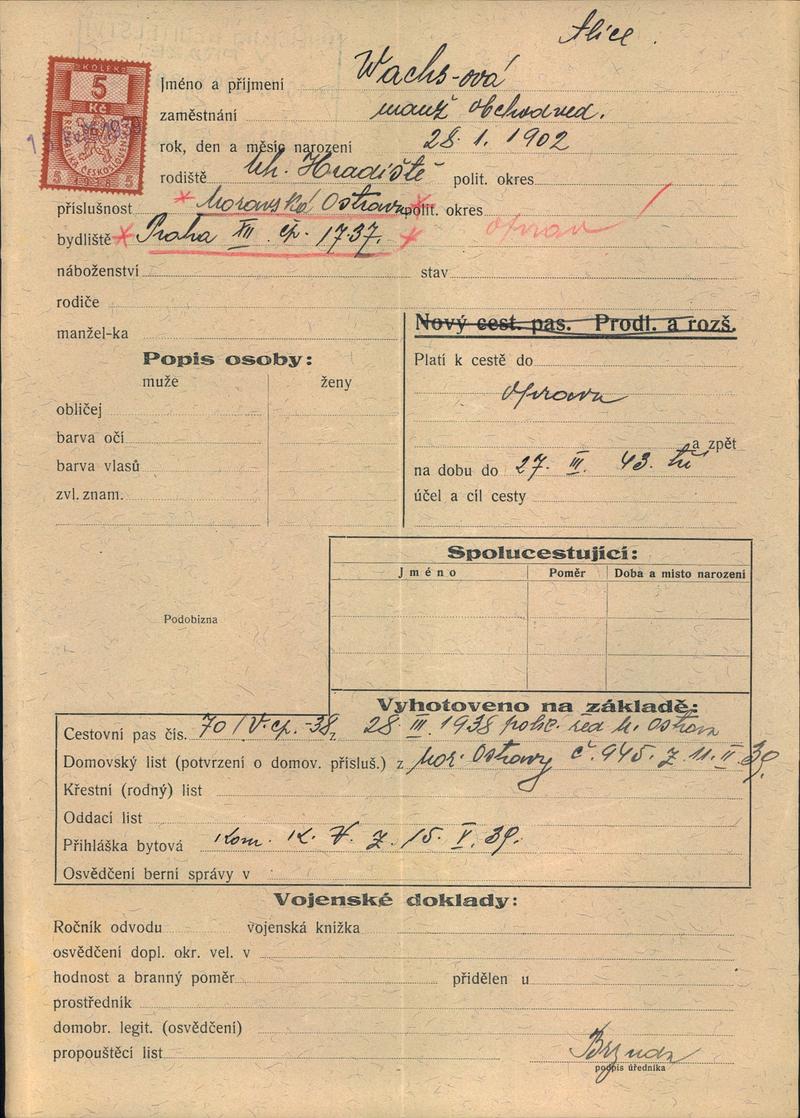 Alice.
KOLEK
5
Kč
REPUBLIKA ČESKOSLOVENSKÁ
5 1938 5
Jméno a příjmení Wachs-ová
zaměstnání manž. obchodved.
rok, den a měsíc narození 28. 1. 1902
rodiště Uh. Hradiště polit. okres
příslušnost Moravská Ostrava polit. okres
bydliště Praha XII. čp. 1737. oprav
náboženství stav
rodiče
manžel-ka
Nový cest. pas. Prodl. a rozš.
Popis osoby:
muže ženy
obličej
barva očí
barva vlasů
zvl. znam.
Platí k cestě do
oprava
a zpět
na dobu do 27. III. 43.
účel a cíl cesty
Podobizna
Spolucestující:
Jméno Poměr Doba a misto narození
Vyhotoveno na základě:
Cestovní pas čis. 70/V.čp.-38, 28. III. 1938 polic. řed. M. Ostrava
Domovský list (potvrzení o domov. přísluš.) z Mor. Ostravy č. 945. z 11. II. 39.
Křestní (rodný) list
Oddací list
Přihláška bytová kom. K. V. z. 15. V. 39.
Osvědčení berní správy v
Vojenské doklady:
Ročník odvodu vojenská knížka
osvědčení dopl. okr. vel. v
hodnost a branný poměr přidělen u
prostředník
domobr. legit. (osvědčení)
propouštěcí list
podpis úředníka